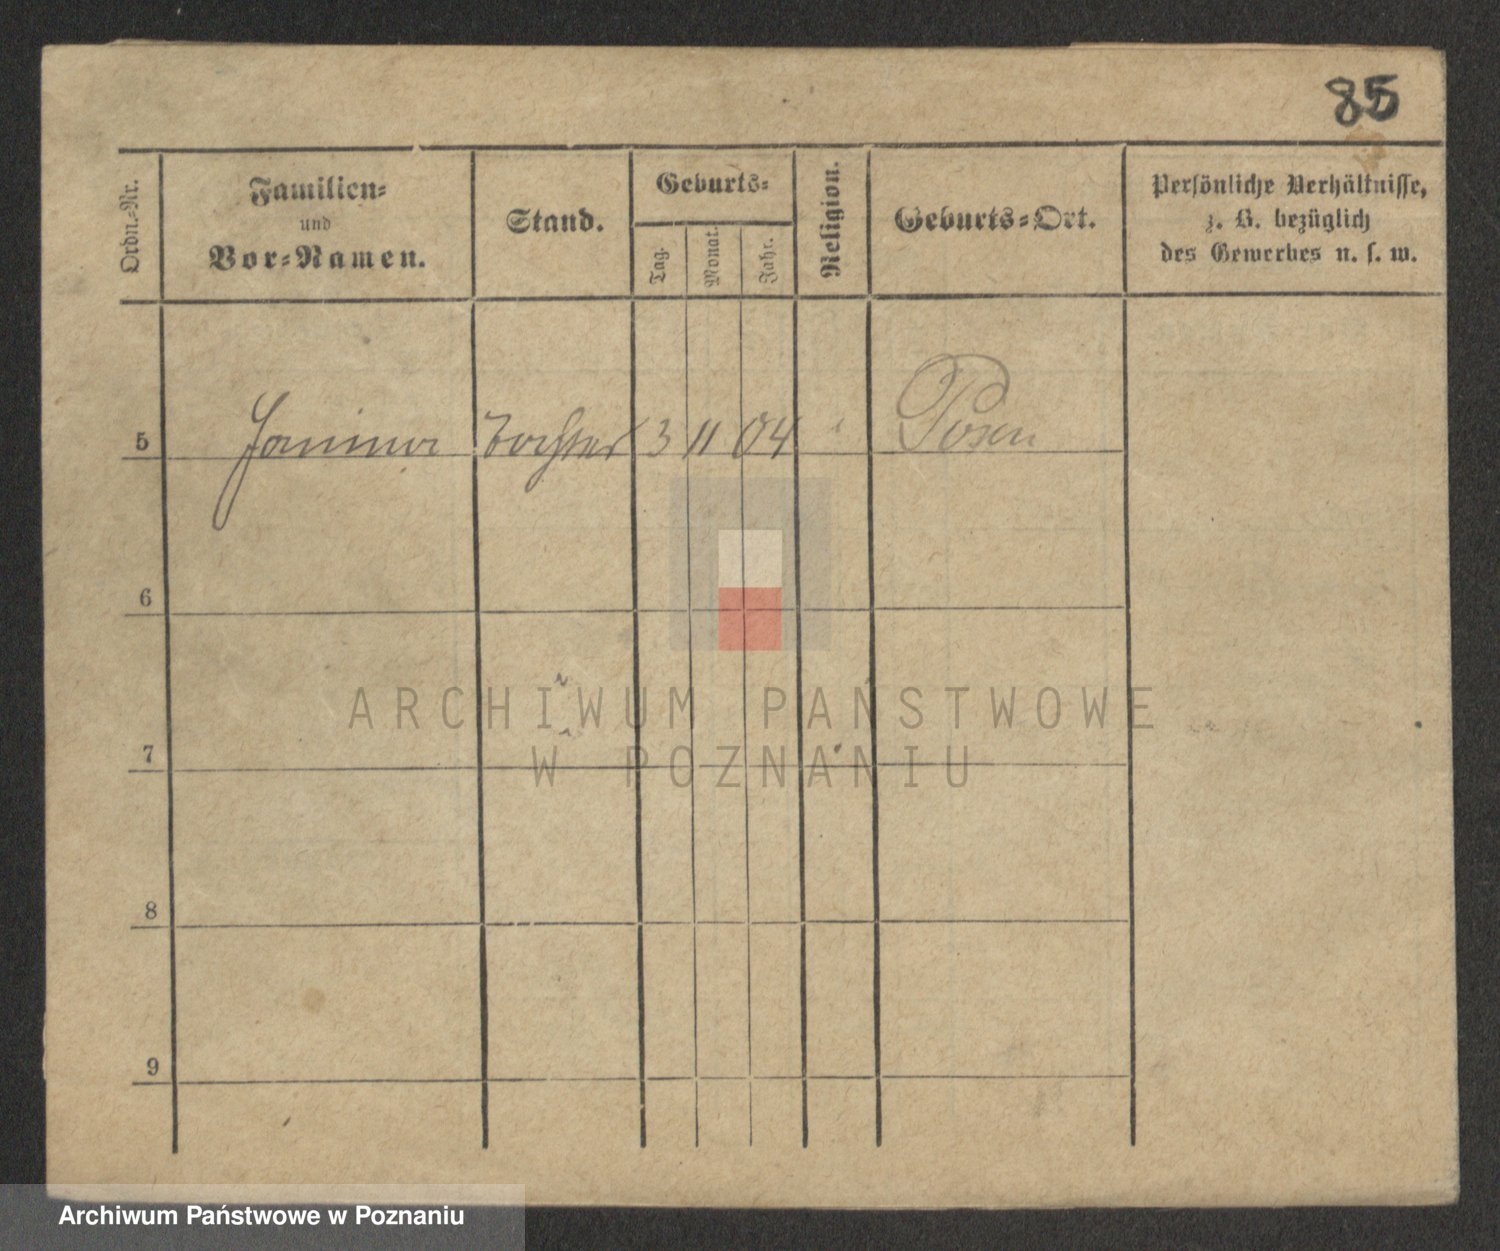 85
Ordn.-Nr.
Familien-
und
Vor-Namen.
Stand.
Geburts-
Tag.
Monat.
Jahr.
Religion.
Geburts-Ort.
Persönliche Verhältnisse,
z. B. bezüglich
des Gewerbes u. s. w.
5 Janina Tochter 3 11 04 Posen
6
7
8
9
ARCHIWUM PAŃSTWOWE
W POZNANIU
Archiwum Państwowe w Poznaniu